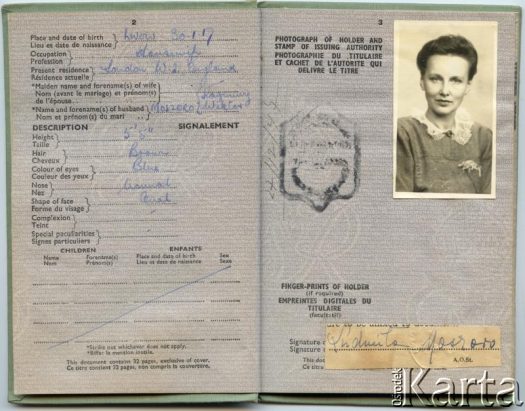 2
Place and date of birth } Lwow 30.1.17
Lieu et date de naissance
Occupation } Housewife
Profession
Present residence } London W.2. England
Résidence actuelle
*Maiden name and forename(s) of wife
Nom (avant le mariage) et prénom(s)
de l'épouse
*Name and forename(s) of husband
Nom et prénom(s) du mari
DESCRIPTION SIGNALEMENT
Height } 5'
Taille
Hair } Brown
Cheveux
Colour of eyes } Blue
Couleur des yeux
Nose } Normal
Nez
Shape of face } Oval
Forme du visage
Complexion }
Teint
Special peculiarities }
Signes particuliers
CHILDREN ENFANTS
Name Forename(s) Place and date of birth Sex
Nom Prénom(s) Lieu et date de naissance Sexe
*Strike out whichever does not apply.
*Biffer la mention inutile.
This document contains 32 pages, exclusive of cover.
Ce titre contient 32 pages, non compris la couverture.
3
PHOTOGRAPH OF HOLDER AND
STAMP OF ISSUING AUTHORITY
PHOTOGRAPHIE DU TITULAIRE
ET CACHET DE L'AUTORITE QUI
DELIVRE LE TITRE
FINGER-PRINTS OF HOLDER
(if required)
EMPREINTES DIGITALES DU
TITULAIRE
(facultatif)
Signature
Signature
This
Ce titre
A.O.St.
ośrodek
Karta